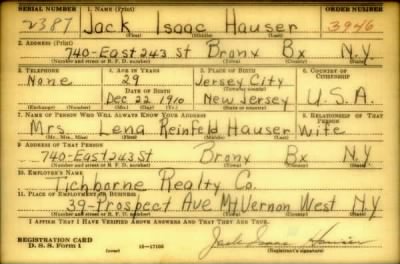 SERIAL NUMBER 1. NAME (Print) ORDER NUMBER
2387 Jack Isaac Hauser 3946
(First) (Middle) (Last)
2. ADDRESS (Print)
740-East 243 St Bronx Bx N.Y.
(Number and street or R. F. D. number) (Town) (County) (State)
3. TELEPHONE 4. AGE IN YEARS 5. PLACE OF BIRTH 6. COUNTRY OF CITIZENSHIP
None 29 Jersey City
DATE OF BIRTH (Town or county)
Dec 22 1910 New Jersey U.S.A.
(Exchange) (Number) (Mo.) (Day) (Yr.) (State or country)
7. NAME OF PERSON WHO WILL ALWAYS KNOW YOUR ADDRESS 8. RELATIONSHIP OF THAT PERSON
Mrs. Lena Reinfeld Hauser Wife
(Mr., Mrs., Miss) (First) (Middle) (Last)
9. ADDRESS OF THAT PERSON
740-East 243 St Bronx Bx N.Y.
(Number and street or R. F. D. number) (Town) (County) (State)
10. EMPLOYER'S NAME
Tichborne Realty Co.
11. PLACE OF EMPLOYMENT OR BUSINESS
39-Prospect Ave Mt Vernon West N.Y.
(Number and street or R. F. D. number) (Town) (County) (State)
I AFFIRM THAT I HAVE VERIFIED ABOVE ANSWERS AND THAT THEY ARE TRUE.
REGISTRATION CARD
D. S. S. Form 1 (over) 16-17105 Jack Isaac Hauser
(Registrant's signature)